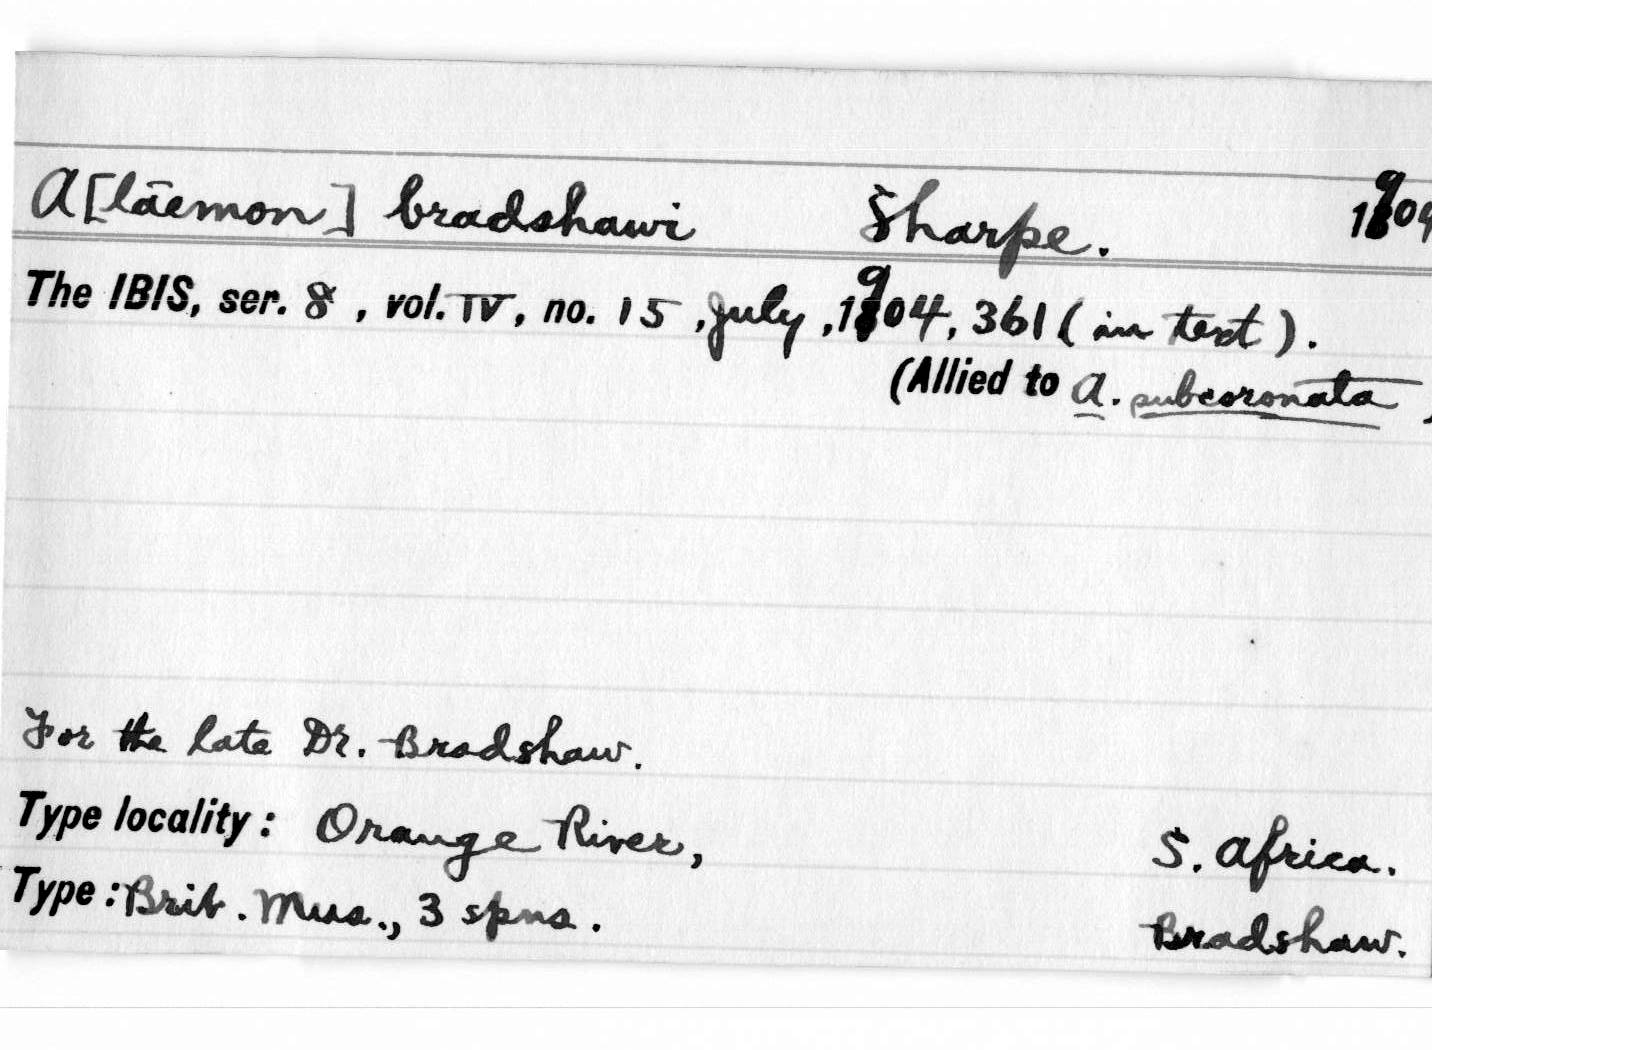 A[läemon] bradshawi Sharpe. 1904
The IBIS, ser. 8, vol. IV, no. 15, July, 1904, 361 (in text).
(Allied to A. subcoronata )
For the late Dr. Bradshaw.
Type locality: Orange River, S. Africa.
Type: Brit. Mus., 3 spns. Bradshaw.